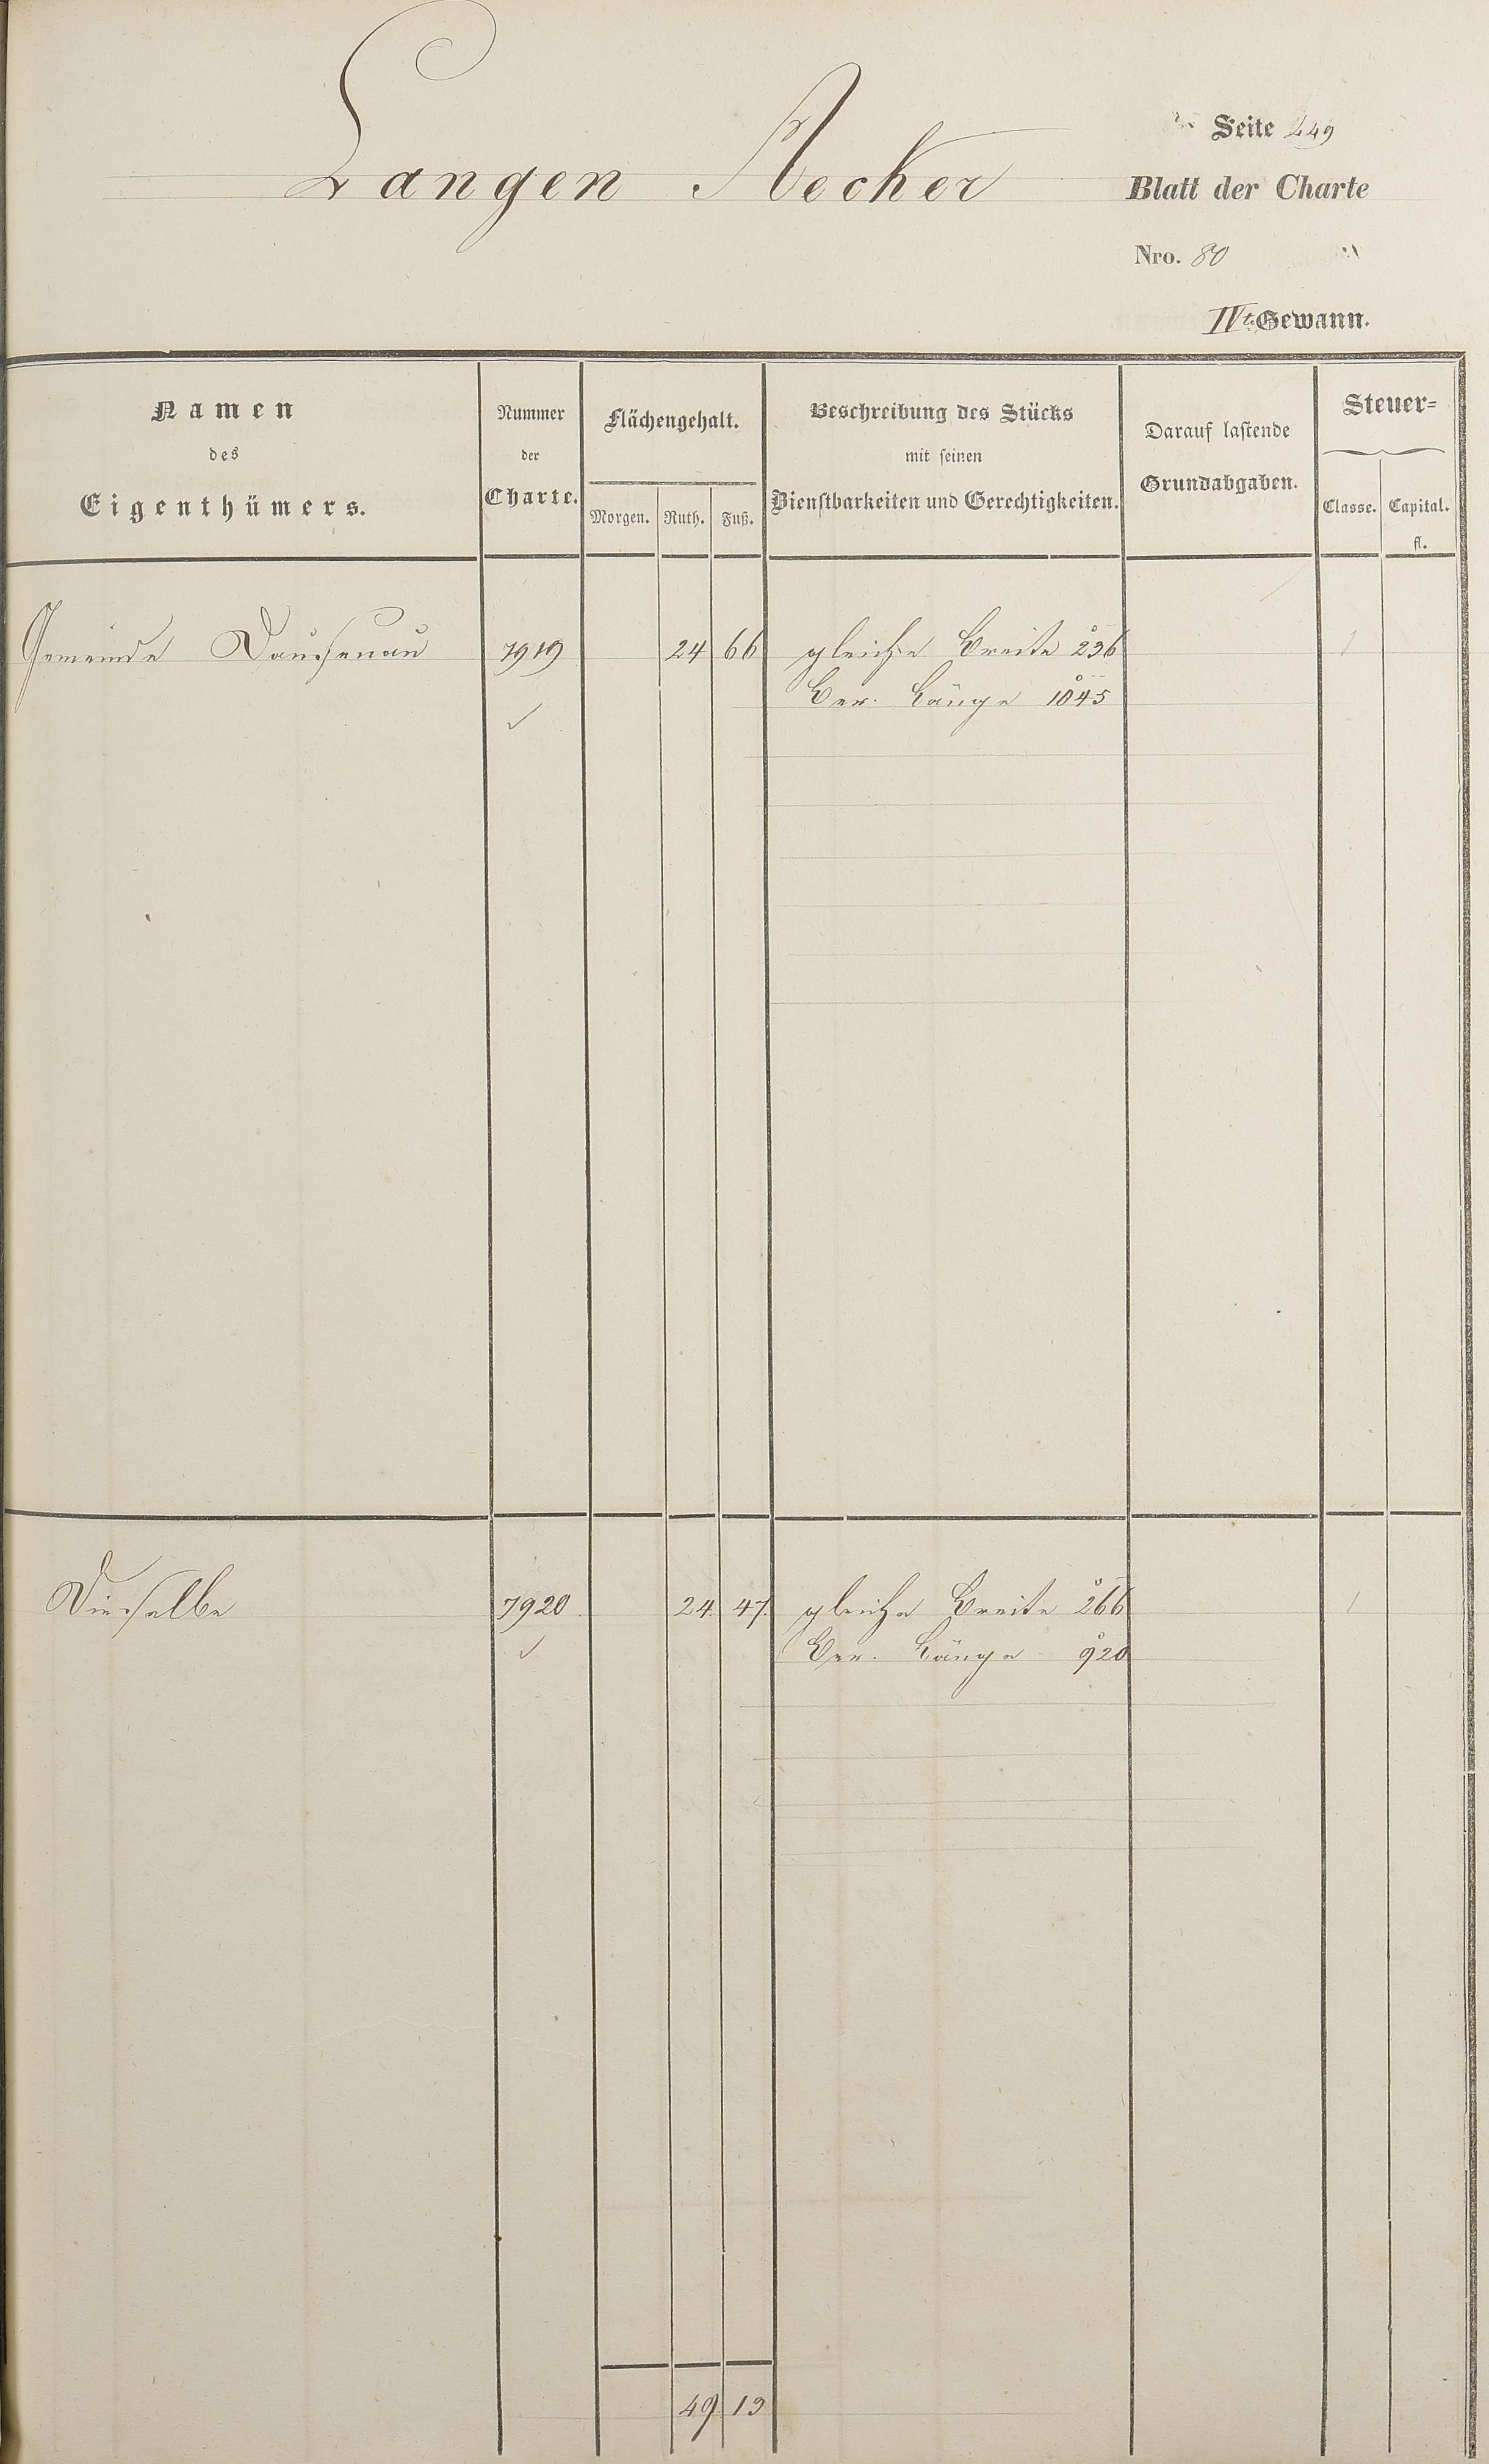 Langen Aecker
Seite 249
Blatt der Charte
Nro. 80
IVte Gewann.
Namen
des
Eigenthümers.
Nummer
der
Charte.
Flächengehalt.
Morgen. Ruth. Fuß.
Beschreibung des Stücks
mit seinen
Dienstbarkeiten und Gerechtigkeiten.
Darauf lastende
Grundabgaben.
Steuer=
Classe. Capital.
fl.
Gemeinde Dausenau 7919 24 66 gleiche Breite 236 1
Ver. Länge 1045
Dieselbe 7920 24 47 gleiche Breite 266 1
Ver. Länge 920
49 13